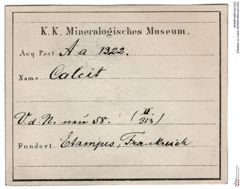 K. K. Mineralogisches Museum.
Acq. Post. A.a 1322.
Name. Calcit
V. d. N. nau 58. (II 313)
Fundort. Etampes, Frankreich